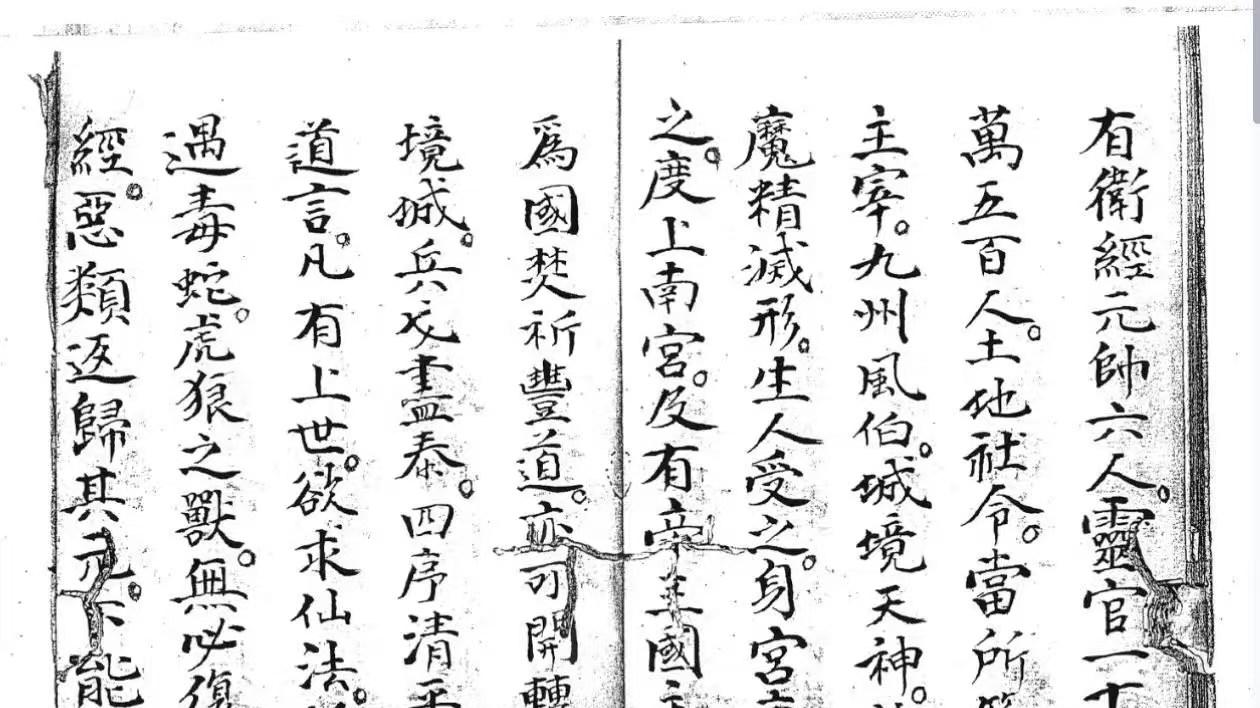 有衛經元帥六人。靈官一十
萬五百人。土地社令。當所
主宰。九州風伯。城境天神。
魔精滅形。生人受之。身宮
之。度上南宮。及有帝主國
爲國焚祈豐道。亦可開轉
境城。兵戈盡泰。四序清平
道言。凡有上世。欲求仙法。
遇毒蛇。虎狼之獸。無必傷
經。惡類返歸其元。不能